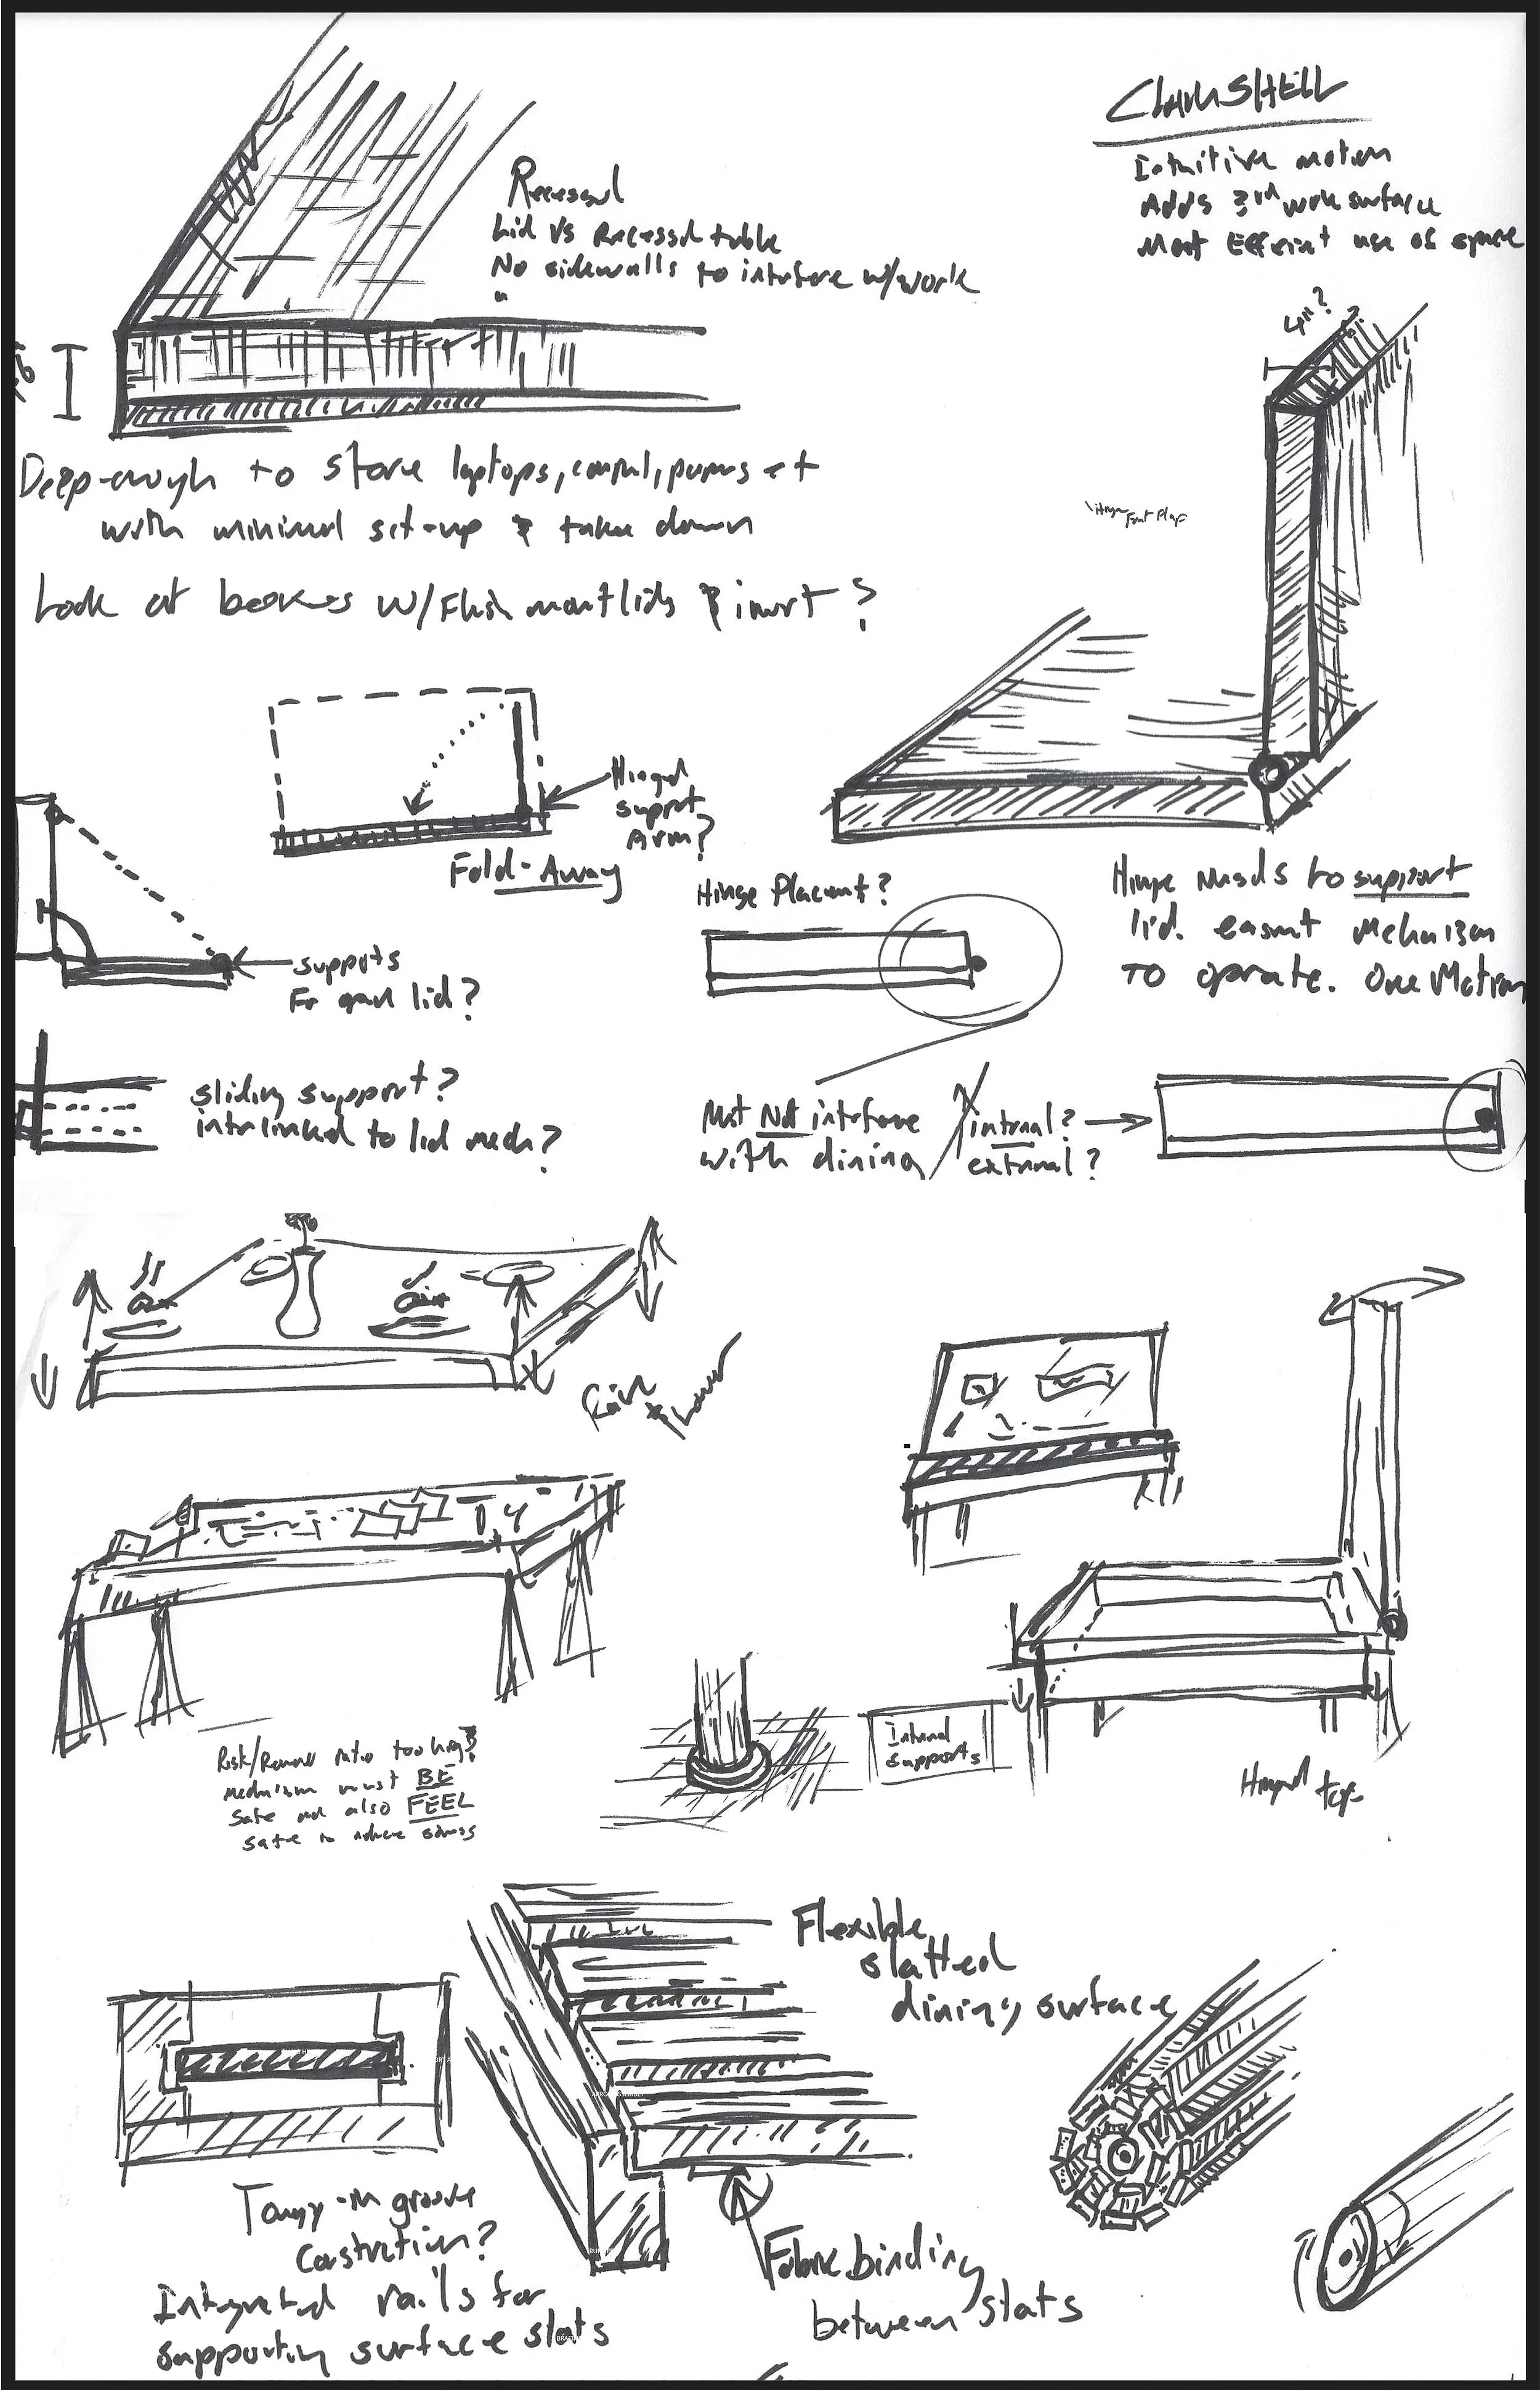 CLAMSHELL
Intuitive motion
Adds 3rd work surface
Most Efficient use of space
Recessed
Lid vs Recessed table
No sidewalls to interfere w/work
4"?
Deep enough to store laptops, papers et
with minimal set-up & take down
Look at boxes w/ lids & invert?
Hinge
Hinged
support
Arm?
Fold-Away
Hinge Placement?
Hinge needs to support
lid. easiest mechanism
To operate. One Motion
supports
For open lid?
sliding support?
interlinked to lid mech?
Must Not interfere
with dining
internal?
external?
Raise
& Lower
Risk/Reward ratio too high?
mechanism must BE
safe and also FEEL
safe to achieve
Internal
supports
Hinged top
Flexible
slatted
dining surface
Tongue-in groove
Construction?
Integrated rails for
supporting surface slats
Fabric binding
between slats